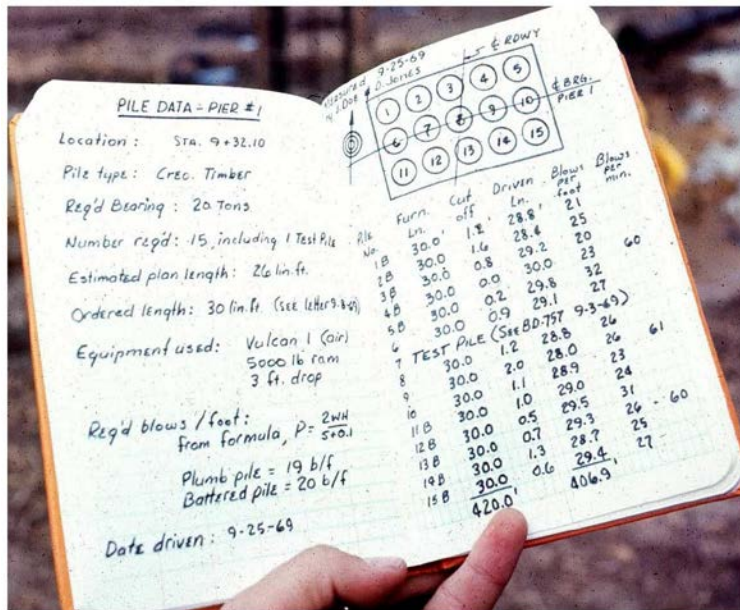 PILE DATA - PIER #1
Location : STA. 9+32.10
Pile type : Creo. Timber
Req'd Bearing : 20 Tons
Number req'd : 15, including 1 Test Pile
Estimated plan length : 26 lin. ft.
Ordered length : 30 lin. ft. (see letter 9-8-69)
Equipment used : Vulcan 1 (air)
5000 lb ram
3 ft. drop
Req'd blows / foot :
from formula, P = 2WH
S+0.1
Plumb pile = 19 b/f
Battered pile = 20 b/f
Date driven : 9-25-69
Measured 9-25-69
by J. Doe & D. Jones
℄ RDWY
1 2 3 4 5
6 7 8 9 10
11 12 13 14 15
℄ BRG.
PIER 1
Pile No. Furn. Ln. Cut off Driven Ln. Blows per foot Blows per min.
1B 30.0' 1.2' 28.8' 21
2B 30.0 1.6 28.4 25
3B 30.0 0.8 29.2 20
4B 30.0 0.0 30.0 23 60
5B 30.0 0.2 29.8 32
6 30.0 0.9 29.1 27
7 TEST PILE (SEE BD-757 9-3-69)
8 30.0 1.2 28.8 26
9 30.0 2.0 28.0 26 61
10 30.0 1.1 28.9 23
11B 30.0 1.0 29.0 24
12B 30.0 0.5 29.5 31
13B 30.0 0.7 29.3 26 60
14B 30.0 1.3 28.7 25
15B 30.0 0.6 29.4 27
420.0' 406.9'